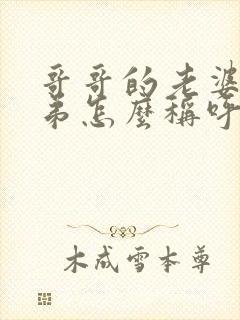 哥哥的老婆
弟怎麼稱呼
木成雪本尊